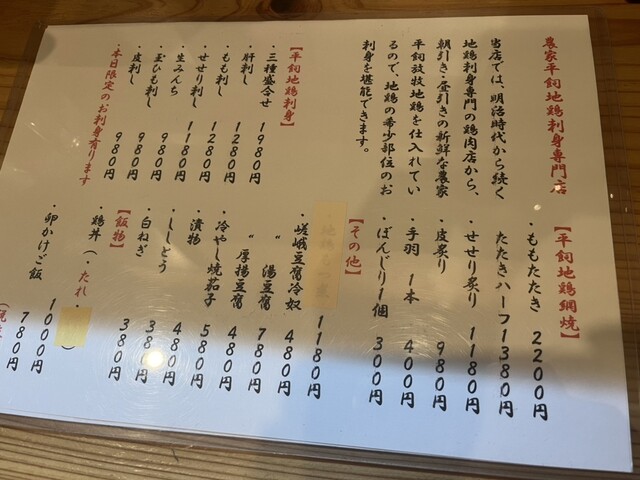 農家平飼地鶏刺身専門店
当店では、明治時代から続く
地鶏刺身専門の鶏肉店から、
朝引き・昼引きの新鮮な農家
平飼放牧地鶏を仕入れてい
るので、地鶏の希少部位のお
刺身を堪能できます。
【平飼地鶏刺身】
・三種盛合せ 1980円
・肝刺し 1280円
・もも刺し 1280円
・せせり刺し 1180円
・生みんち 980円
・玉ひも刺し 980円
・皮刺し 980円
・本日限定のお刺身有ります
【平飼地鶏網焼】
・ももたたき 2200円
たたきハーフ 1380円
・せせり炙り 1180円
・皮炙り 980円
・手羽 1本 400円
・ぼんじり1個 300円
【その他】
1180円
・嵯峨豆腐冷奴 480円
〃 湯豆腐 780円
〃 厚揚豆腐 480円
・冷やし焼茄子 580円
・漬物 480円
・ししとう 380円
・白ねぎ 380円
【飯物】
・鶏丼（・たれ・ ） 1000円
・卵かけご飯 780円